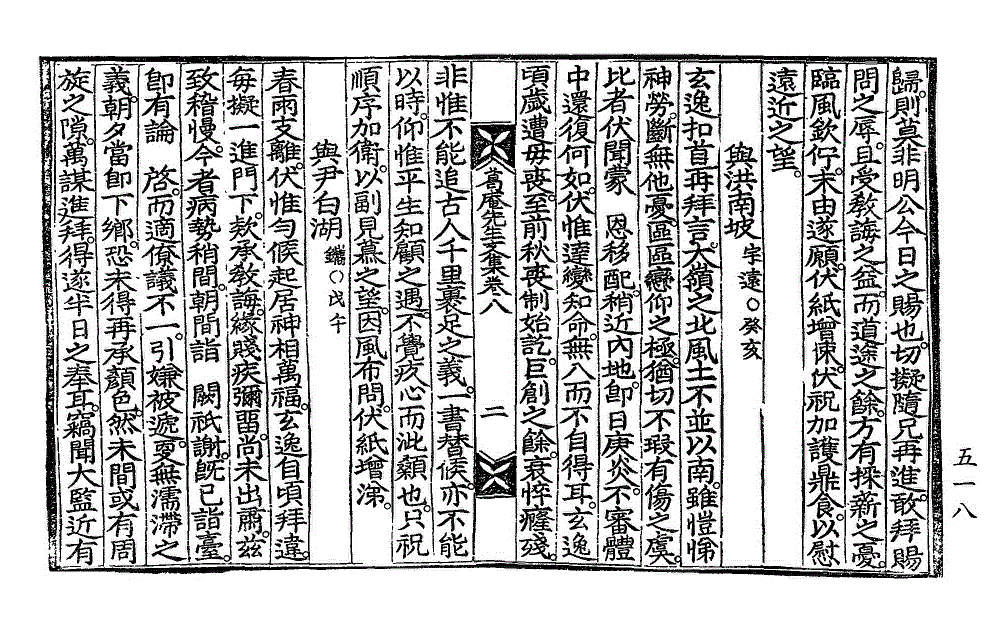 歸。則莫非明公今日之賜也。切擬隨兄再進。敢拜賜
問之辱。且受敎誨之益。而道途之餘。方有採薪之憂。
臨風欽佇。未由遂願。伏紙增悚。伏祝加護鼎食。以慰
遠近之望。
與洪南坡 宇遠○癸亥
玄逸扣首再拜言。大嶺之北風土不並以南。雖愷悌
神勞。斷無他憂。區區戀仰之極。猶切不瑕有傷之虞。
比者伏聞蒙 恩移配。稍近內地。卽日庚炎。不審體
中還復何如。伏惟達變知命。無入而不自得耳。玄逸
頃歲遭毋喪。至前秋喪制始訖。巨創之餘。衰悴癃殘。
葛庵先生文集卷八 二
非惟不能追古人千里裹足之義。一書替候。亦不能
以時。仰惟平生知顧之遇。不覺疚心而泚顙也。只祝
順序加衛。以副見慕之望。因風布問。伏紙增涕。
與尹白湖 鑴○戊午
春雨支離。伏惟匀候起居神相萬福。玄逸自頃拜違。
每擬一進門下。欵承敎誨。緣賤疾彌留。尙未出肅。玆
致稽慢。今者病勢稍間。朝間詣 闕祇謝。旣已詣臺。
卽有論 啓。而適僚議不一。引嫌被遞。更無濡滯之
義。朝夕當卽下鄕。恐未得再承顏色。然未間或有周
旋之隙。萬謀進拜。得遂半日之奉耳。竊聞大監近有
五一八